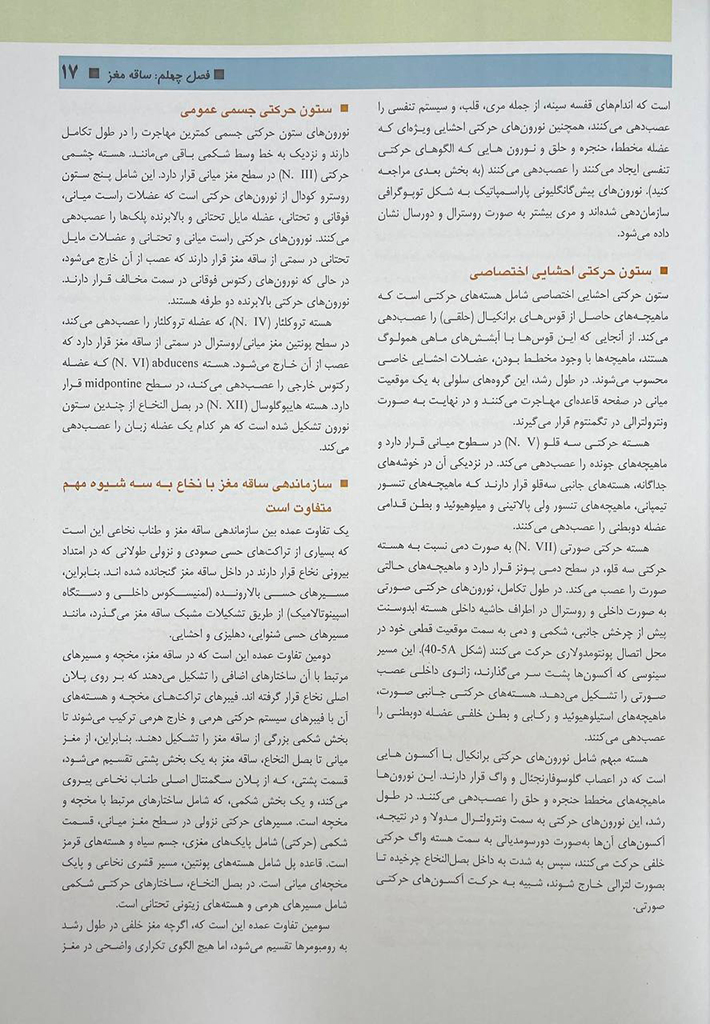 فصل چهلم: ساقه مغز ■ ۱۷
است که اندام‌های قفسه سینه، از جمله مری، قلب، و سیستم تنفسی را
عصب‌دهی می‌کنند، همچنین نورون‌های حرکتی احشایی ویژه‌ای که
عضله مخطط، حنجره و حلق و نورون هایی که الگوهای حرکتی
تنفسی ایجاد می‌کنند را عصب‌دهی می‌کنند (به بخش بعدی مراجعه
کنید). نورون‌های پیش‌گانگلیونی پاراسمپاتیک به شکل توپوگرافی
سازمان‌دهی شده‌اند و مری بیشتر به صورت روسترال و دورسال نشان
داده می‌شود.
■ ستون حرکتی احشایی اختصاصی
ستون حرکتی احشایی اختصاصی شامل هسته‌های حرکتی است که
ماهیچه‌های حاصل از قوس‌های برانکیال (حلقی) را عصب‌دهی
می‌کند. از آنجایی که این قوس‌ها با آبشش‌های ماهی همولوگ
هستند، ماهیچه‌ها با وجود مخطط بودن، عضلات احشایی خاصی
محسوب می‌شوند. در طول رشد، این گروه‌های سلولی به یک موقعیت
میانی در صفحه قاعده‌ای مهاجرت می‌کنند و در نهایت به صورت
ونترولترالی در تگمنتوم قرار می‌گیرند.
هسته حرکتی سه قلو (N. V) در سطوح میانی قرار دارد و
ماهیچه‌های جونده را عصب‌دهی می‌کند. در نزدیکی آن در خوشه‌های
جداگانه، هسته‌های جانبی سه‌قلو قرار دارند که ماهیچه‌های تنسور
تیمپانی، ماهیچه‌های تنسور ولی پالاتینی و میلوهیوئید و بطن قدامی
عضله دوبطنی را عصب‌دهی می‌کنند.
هسته حرکتی صورتی (N. VII) به صورت دمی نسبت به هسته
حرکتی سه قلو، در سطح دمی پونز قرار دارد و ماهیچه‌های حالتی
صورت را عصب می‌کند. در طول تکامل، نورون‌های حرکتی صورتی
به صورت داخلی و روسترال در اطراف حاشیه داخلی هسته ابدوسنت
پیش از چرخش جانبی، شکمی و دمی به سمت موقعیت قطعی خود در
محل اتصال پونتومدولاری حرکت می‌کنند (شکل 40-5A). این مسیر
سینوسی که آکسون‌ها پشت سر می‌گذارند، زانوی داخلی عصب
صورتی را تشکیل می‌دهد. هسته‌های حرکتی جانبی صورت،
ماهیچه‌های استیلوهیوئید و رکابی و بطن خلفی عضله دوبطنی را
عصب‌دهی می‌کنند.
هسته مبهم شامل نورون‌های حرکتی برانکیال با آکسون هایی
است که در اعصاب گلوسوفارنجئال و واگ قرار دارند. این نورون‌ها
ماهیچه‌های مخطط حنجره و حلق را عصب‌دهی می‌کنند. در طول
رشد، این نورون‌های حرکتی به سمت ونترولترال مدولا و در نتیجه،
آکسون‌های آن‌ها به‌صورت دورسومدیالی به سمت هسته واگ حرکتی
خلفی حرکت می‌کنند، سپس به شدت به داخل بصل‌النخاع چرخیده تا
بصورت لترالی خارج شوند، شبیه به حرکت آکسون‌های حرکتی
صورتی.
■ ستون حرکتی جسمی عمومی
نورون‌های ستون حرکتی جسمی کمترین مهاجرت را در طول تکامل
دارند و نزدیک به خط وسط شکمی باقی می‌مانند. هسته چشمی
حرکتی (N. III) در سطح مغز میانی قرار دارد. این شامل پنج ستون
روسترو کودال از نورون‌های حرکتی است که عضلات راست میانی،
فوقانی و تحتانی، عضله مایل تحتانی و بالابرنده پلک‌ها را عصب‌دهی
می‌کنند. نورون‌های حرکتی راست میانی و تحتانی و عضلات مایل
تحتانی در سمتی از ساقه مغز قرار دارند که عصب از آن خارج می‌شود،
در حالی که نورون‌های رکتوس فوقانی در سمت مخالف قرار دارند.
نورون‌های حرکتی بالابرنده دو طرفه هستند.
هسته تروکلئار (N. IV)، که عضله تروکلئار را عصب‌دهی می‌کند،
در سطح پونتین مغز میانی/روسترال در سمتی از ساقه مغز قرار دارد که
عصب از آن خارج می‌شود. هسته abducens (N. VI) که عضله
رکتوس خارجی را عصب‌دهی می‌کند، در سطح midpontine قرار
دارد. هسته هایپوگلوسال (N. XII) در بصل النخاع از چندین ستون
نورون تشکیل شده است که هر کدام یک عضله زبان را عصب‌دهی
می‌کند.
■ سازماندهی ساقه مغز با نخاع به سه شیوه مهم
متفاوت است
یک تفاوت عمده بین سازماندهی ساقه مغز و طناب نخاعی این است
که بسیاری از تراکت‌های حسی صعودی و نزولی طولانی که در امتداد
بیرونی نخاع قرار دارند در داخل ساقه مغز گنجانده شده اند. بنابراین،
مسیرهای حسی بالارونده (لمنیسکوس داخلی و دستگاه
اسپینوتالامیک) از طریق تشکیلات مشبک ساقه مغز می‌گذرد، مانند
مسیرهای حسی شنوایی، دهلیزی و احشایی.
دومین تفاوت عمده این است که در ساقه مغز، مخچه و مسیرهای
مرتبط با آن ساختارهای اضافی را تشکیل می‌دهند که بر روی پلان
اصلی نخاع قرار گرفته اند. فیبرهای تراکت‌های مخچه و هسته‌های
آن با فیبرهای سیستم حرکتی هرمی و خارج هرمی ترکیب می‌شوند تا
بخش شکمی بزرگی از ساقه مغز را تشکیل دهند. بنابراین، از مغز
میانی تا بصل النخاع، ساقه مغز به یک بخش پشتی تقسیم می‌شود،
قسمت پشتی، که از پلان سگمنتال اصلی طناب نخاعی پیروی
می‌کند، و یک بخش شکمی، که شامل ساختارهای مرتبط با مخچه و
مخچه است. مسیرهای حرکتی نزولی در سطح مغز میانی، قسمت
شکمی (حرکتی) شامل پایک‌های مغزی، جسم سیاه و هسته‌های قرمز
است. قاعده پل شامل هسته‌های پونتین، مسیر قشری نخاعی و پایک
مخچه‌ای میانی است. در بصل النخاع، ساختارهای حرکتی شکمی
شامل مسیرهای هرمی و هسته‌های زیتونی تحتانی است.
سومین تفاوت عمده این است که، اگرچه مغز خلفی در طول رشد
به رومبومرها تقسیم می‌شود، اما هیچ الگوی تکراری واضحی در مغز